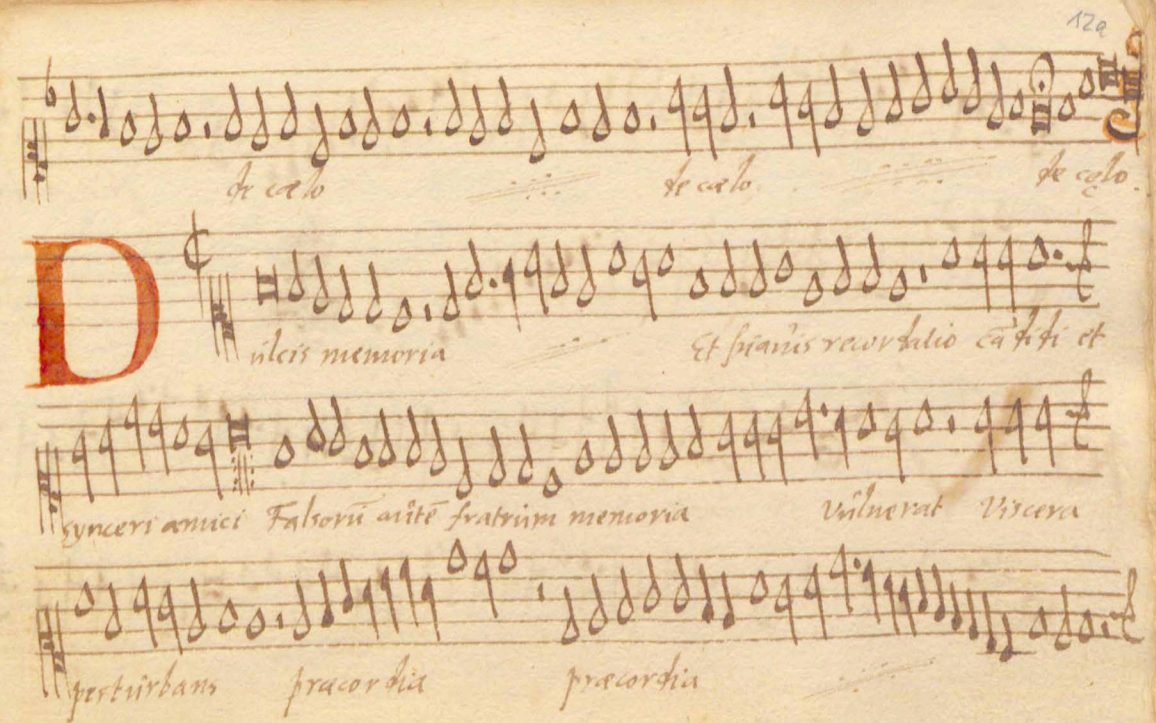 12a
de cælo de cælo de cęlo.
Dulcis memoria Et suauis recordatio cādidi et
synceri amici Falsorū autē fratrum memoria Vulnerat Viscera
perturbans præcordia præcordia